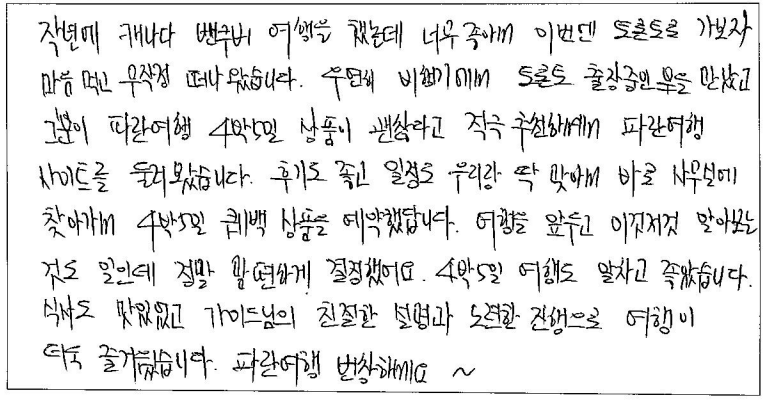 작년에 캐나다 밴쿠버 여행을 했는데 너무 좋아서 이번엔 토론토를 가보자
마음 먹고 무작정 떠나 왔습니다. 우연히 비행기에서 토론토 출장중인 분을 만났고
그분이 파란여행 4박5일 상품이 괜찮다고 적극 추천하셔서 파란여행
사이트를 둘러 봤습니다. 후기도 좋고 일정도 우리랑 딱 맞아서 바로 사무실에
찾아가서 4박5일 퀘백 상품을 예약했답니다. 여행을 앞두고 이것저것 알아보는
것도 일인데 정말 맘 편하게 결정했어요. 4박5일 여행도 알차고 좋았습니다.
식사도 맛있었고 가이드님의 친절한 설명과 노련한 진행으로 여행이
더욱 즐거웠습니다. 파란여행 번창하세요 ~